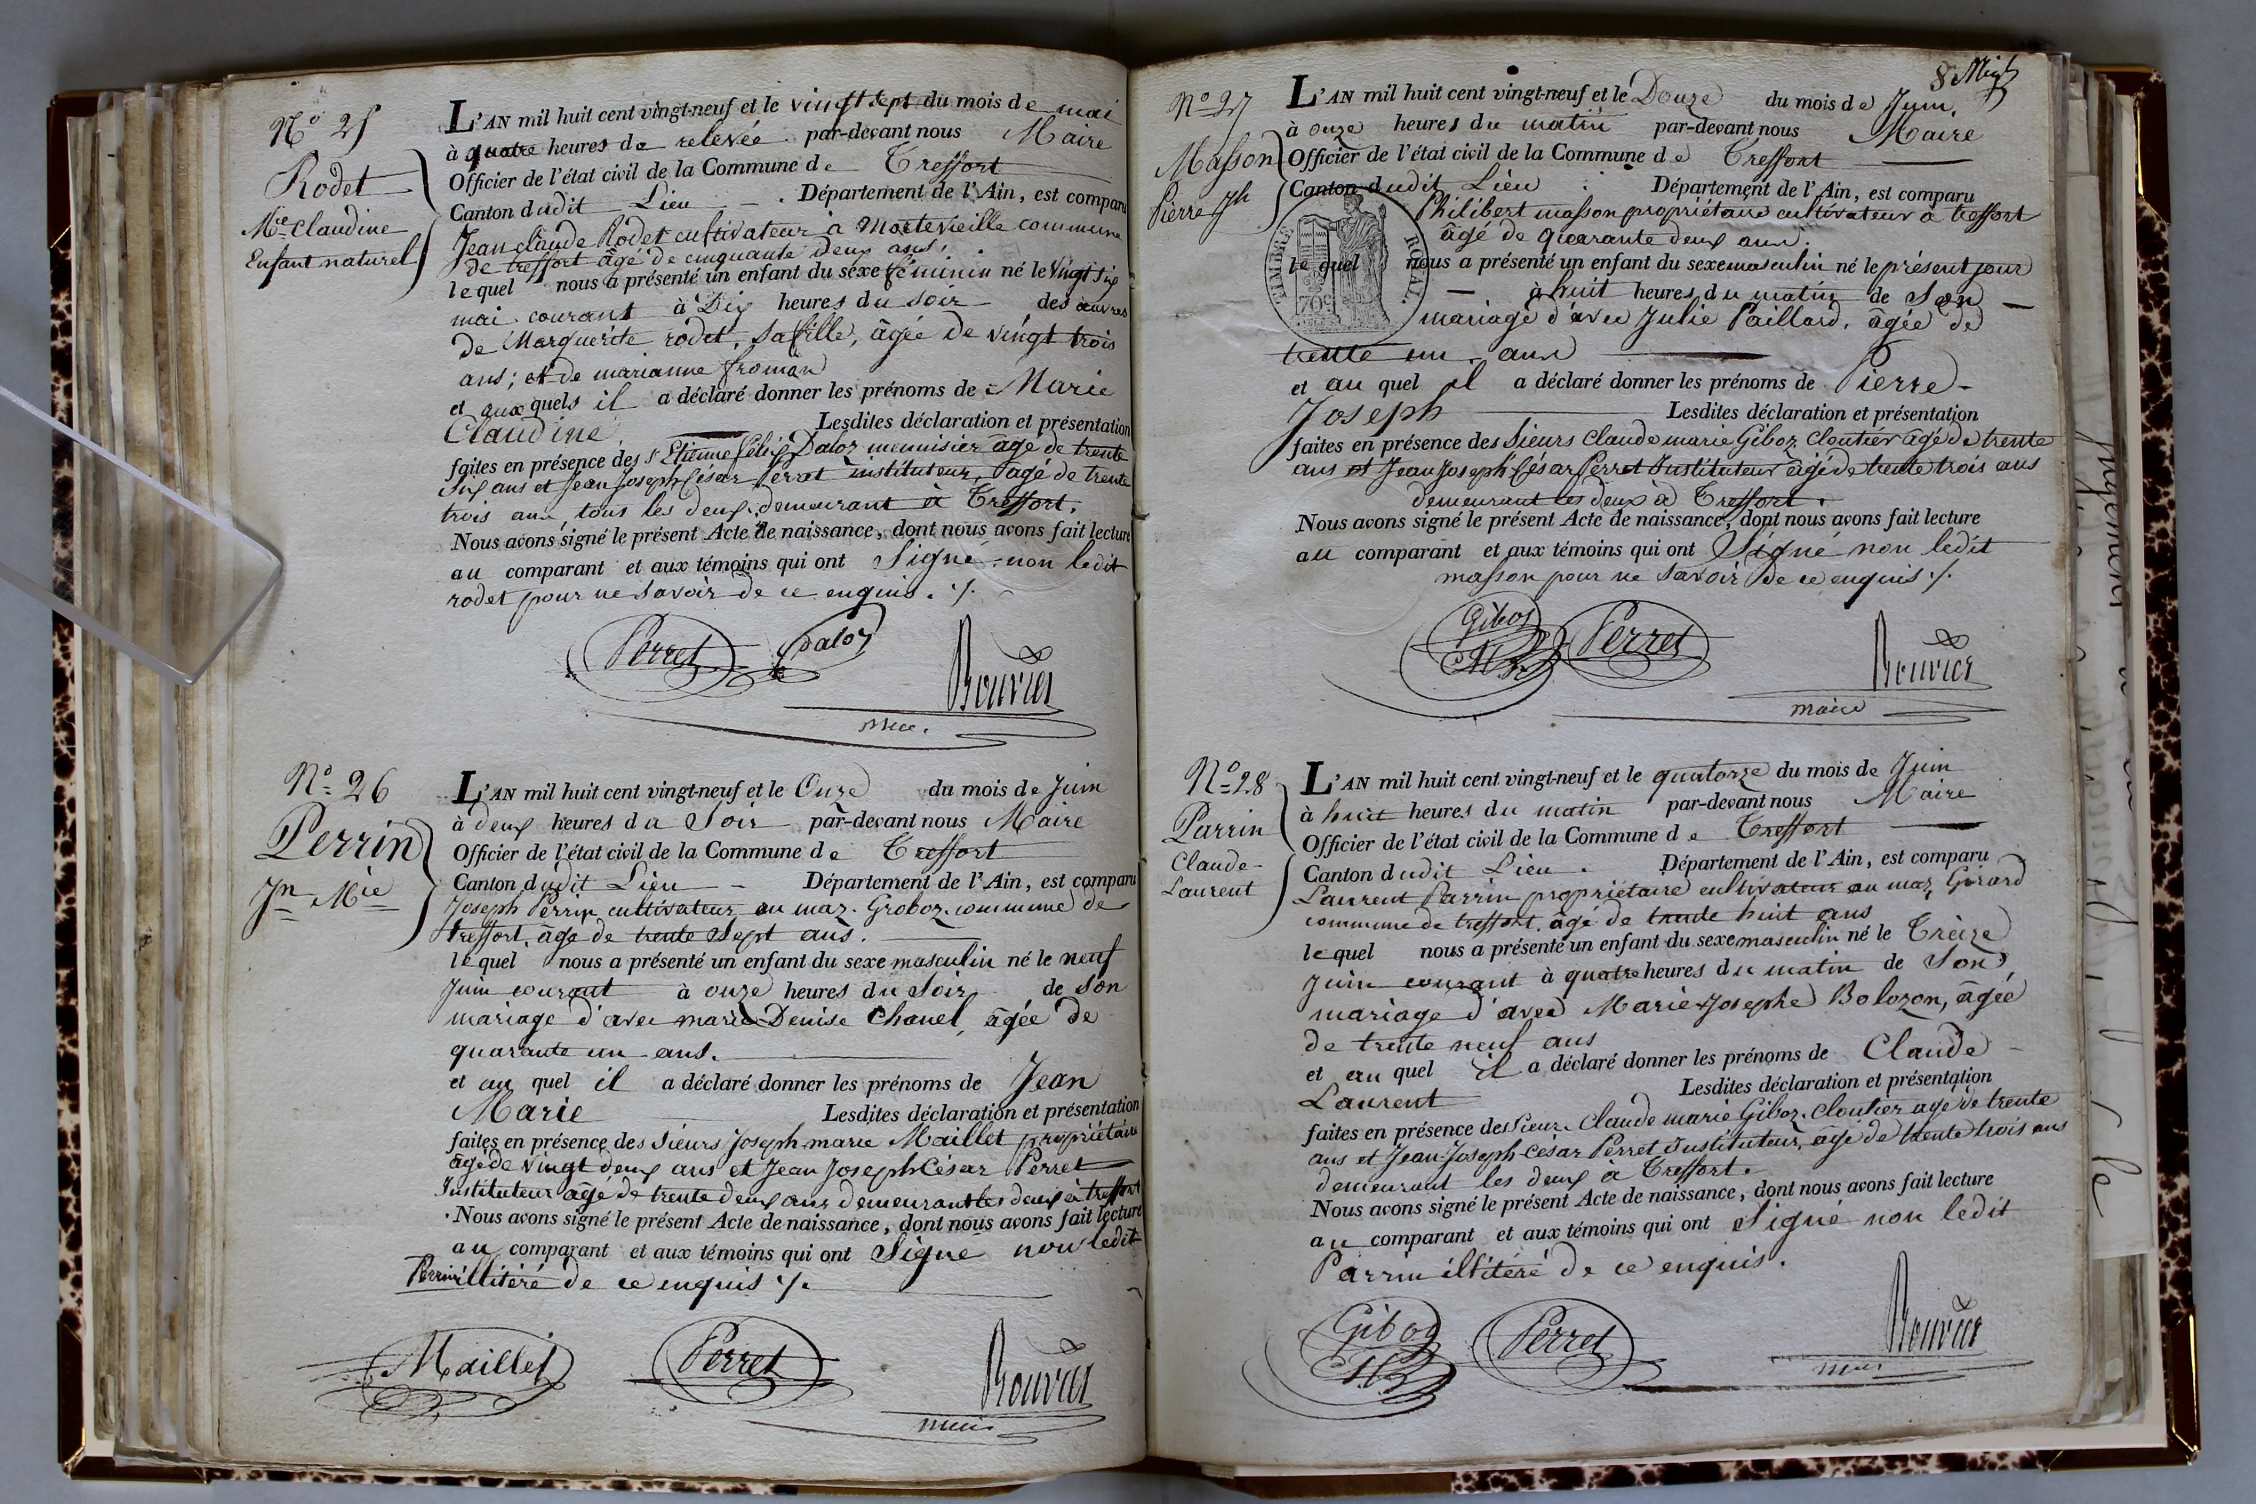 N° 25
Rodet
Mie Claudine
Enfant naturel
L'AN mil huit cent vingt-neuf et le vingt sept du mois de mai
à quatre heures de relevée par-devant nous Maire
Officier de l'état civil de la Commune de Treffort
Canton dudit Lieu Département de l'Ain, est comparu
Jean claude Rodet cultivateur à Montevieille commune
de treffort âgé de cinquante deux ans.
lequel nous a présenté un enfant du sexe féminin né le vingt six
mai courant à Dix heures du soir des œuvres
de Marguerite rodet, sa fille, âgée de vingt trois
ans; et de marianne froman
et aux quels il a déclaré donner les prénoms de Marie
Claudine Lesdites déclaration et présentation
faites en présence des Srs Etienne félix Daloz menuisier âgé de trente
six ans et Jean Joseph César Perret instituteur, âgé de trente
trois ans, tous les deux demeurant à Treffort.
Nous avons signé le présent Acte de naissance, dont nous avons fait lecture
au comparant et aux témoins qui ont Signé non ledit
rodet pour ne savoir de ce enquis ./.
Perret Daloz Bouvier
mre.
N° 26
Perrin
Jn Mie
L'AN mil huit cent vingt-neuf et le Onze du mois de Juin
à deux heures du Soir par-devant nous Maire
Officier de l'état civil de la Commune de Treffort
Canton dudit Lieu Département de l'Ain, est comparu
Joseph Perrin cultivateur au maz Groboz commune de
treffort, âgé de trente sept ans.
lequel nous a présenté un enfant du sexe masculin né le neuf
Juin courant à onze heures du Soir de son
mariage d'avec marie Denise Chanel, âgée de
quarante un ans.
et au quel il a déclaré donner les prénoms de Jean
Marie Lesdites déclaration et présentation
faites en présence des Sieurs Joseph-marie Maillet propriétaire
âgé de vingt deux ans et Jean Joseph César Perret
Instituteur âgé de trente deux ans demeurant les deux à treffort
Nous avons signé le présent Acte de naissance, dont nous avons fait lecture
au comparant et aux témoins qui ont Signé non ledit
Perrin illitéré de ce enquis ./.
Maillet Perret Bouvier
8
N° 27
Masson
Pierre Jh
L'AN mil huit cent vingt-neuf et le Douze du mois de Juin
à onze heures du matin par-devant nous Maire
Officier de l'état civil de la Commune de Treffort
Canton dudit Lieu Département de l'Ain, est comparu
Philibert masson propriétaire cultivateur à treffort
âgé de quarante deux ans.
TIMBRE ROYAL
70c
lequel nous a présenté un enfant du sexe masculin né le présent jour
à huit heures du matin de Son
mariage d'avec Julie Paillard, âgée de
trente un ans
et au quel il a déclaré donner les prénoms de Pierre-
Joseph Lesdites déclaration et présentation
faites en présence des Sieurs Claude marie Giboz Cloutier âgé de trente
ans et Jean Joseph César Perret Instituteur âgé de trente trois ans
demeurant les deux à Treffort.
Nous avons signé le présent Acte de naissance, dont nous avons fait lecture
au comparant et aux témoins qui ont Signé non ledit
masson pour ne savoir de ce enquis ./.
Giboz Perret Bouvier
maire
N° 28
Parrin
Claude-
Laurent
L'AN mil huit cent vingt-neuf et le quatorze du mois de Juin
à huit heures du matin par-devant nous Maire
Officier de l'état civil de la Commune de Treffort
Canton dudit Lieu. Département de l'Ain, est comparu
Laurent Parrin propriétaire cultivateur au maz Girard
commune de treffort, âgé de trente huit ans
lequel nous a présenté un enfant du sexe masculin né le Treize
Juin courant à quatre heures du matin de Son
mariage d'avec Marie-Josephe Bolozon, âgée
de trente neuf ans
et au quel il a déclaré donner les prénoms de Claude
Laurent Lesdites déclaration et présentation
faites en présence des Sieurs Claude marie Giboz Cloutier agé de trente
ans et Jean-Joseph-César Perret Instituteur, âgé de trente trois ans
demeurant les deux à Treffort.
Nous avons signé le présent Acte de naissance, dont nous avons fait lecture
au comparant et aux témoins qui ont Signé non ledit
Parrin illitéré de ce enquis.
Giboz Perret Bouvier